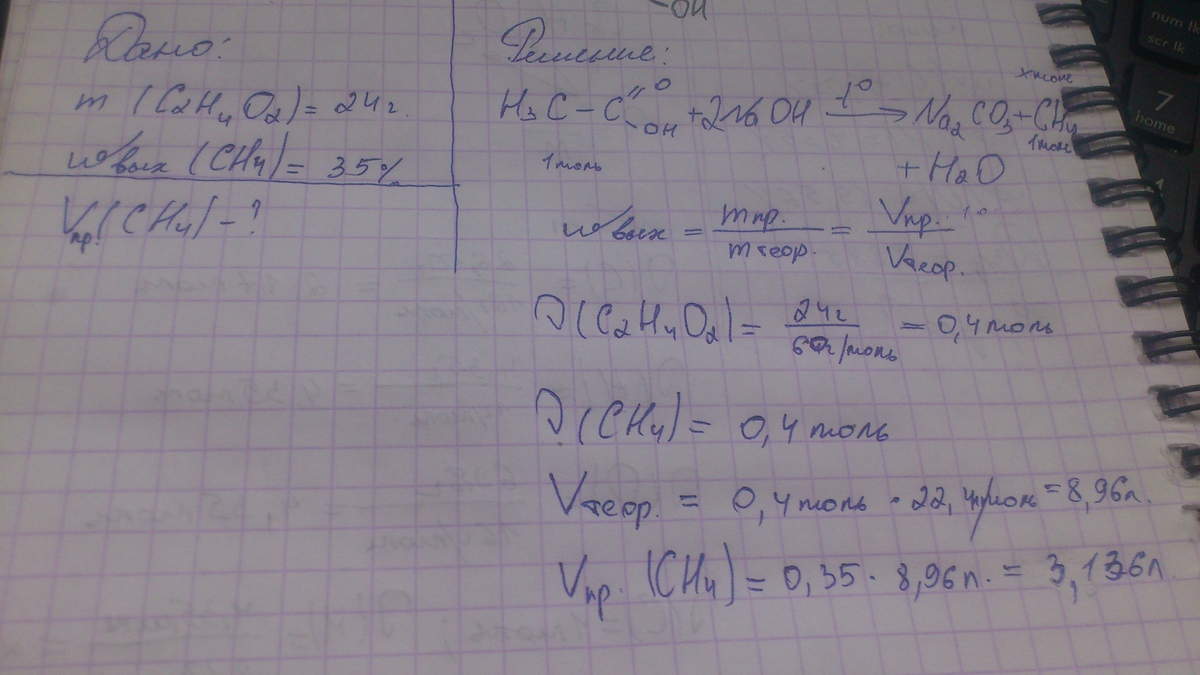 OH
Дано:
m (C2H4O2) = 24г.
wвых (CH4) = 35%
Vпр.(CH4) - ?
Решение:
x моль
H3C - C =O -OH + 2NaOH t° → Na2CO3 + CH4
1 моль 1 моль
+ H2O
wвых = mпр. / mтеор. = Vпр. / Vтеор.
ν(C2H4O2) = 24г / 60г/моль = 0,4 моль
ν(CH4) = 0,4 моль
Vтеор. = 0,4 моль · 22,4л/моль = 8,96л.
Vпр. (CH4) = 0,35 · 8,96л. = 3,136л
num lk
scr lk
7
home